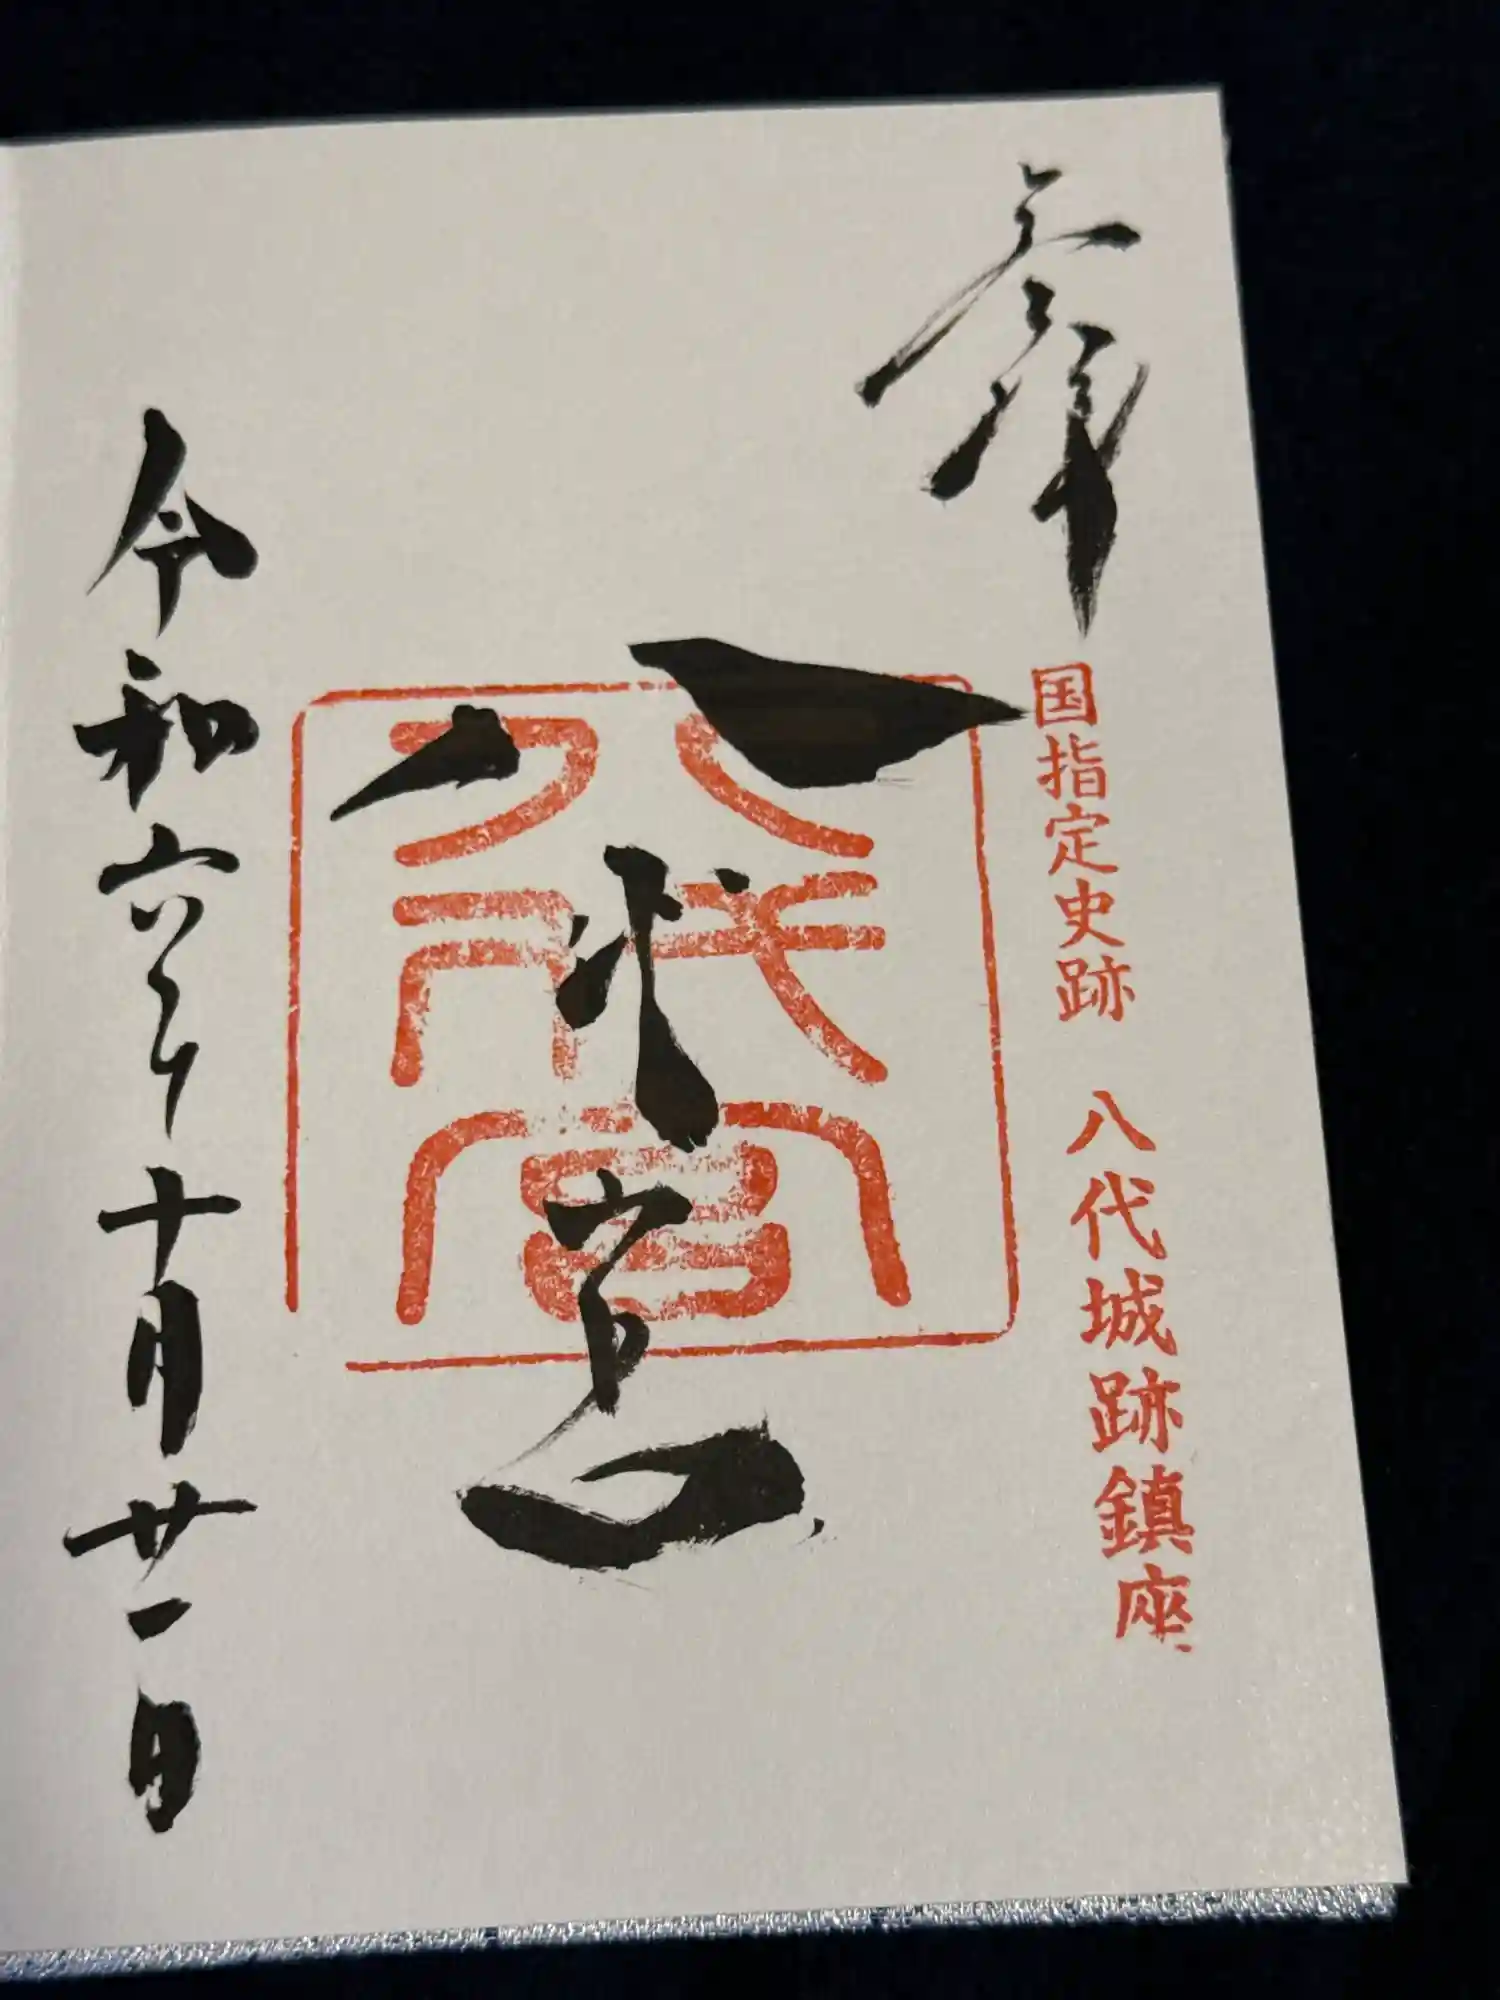 奉拝
国指定史跡 八代城跡鎮座
八代宮
八代宮
令和六年十月廿一日